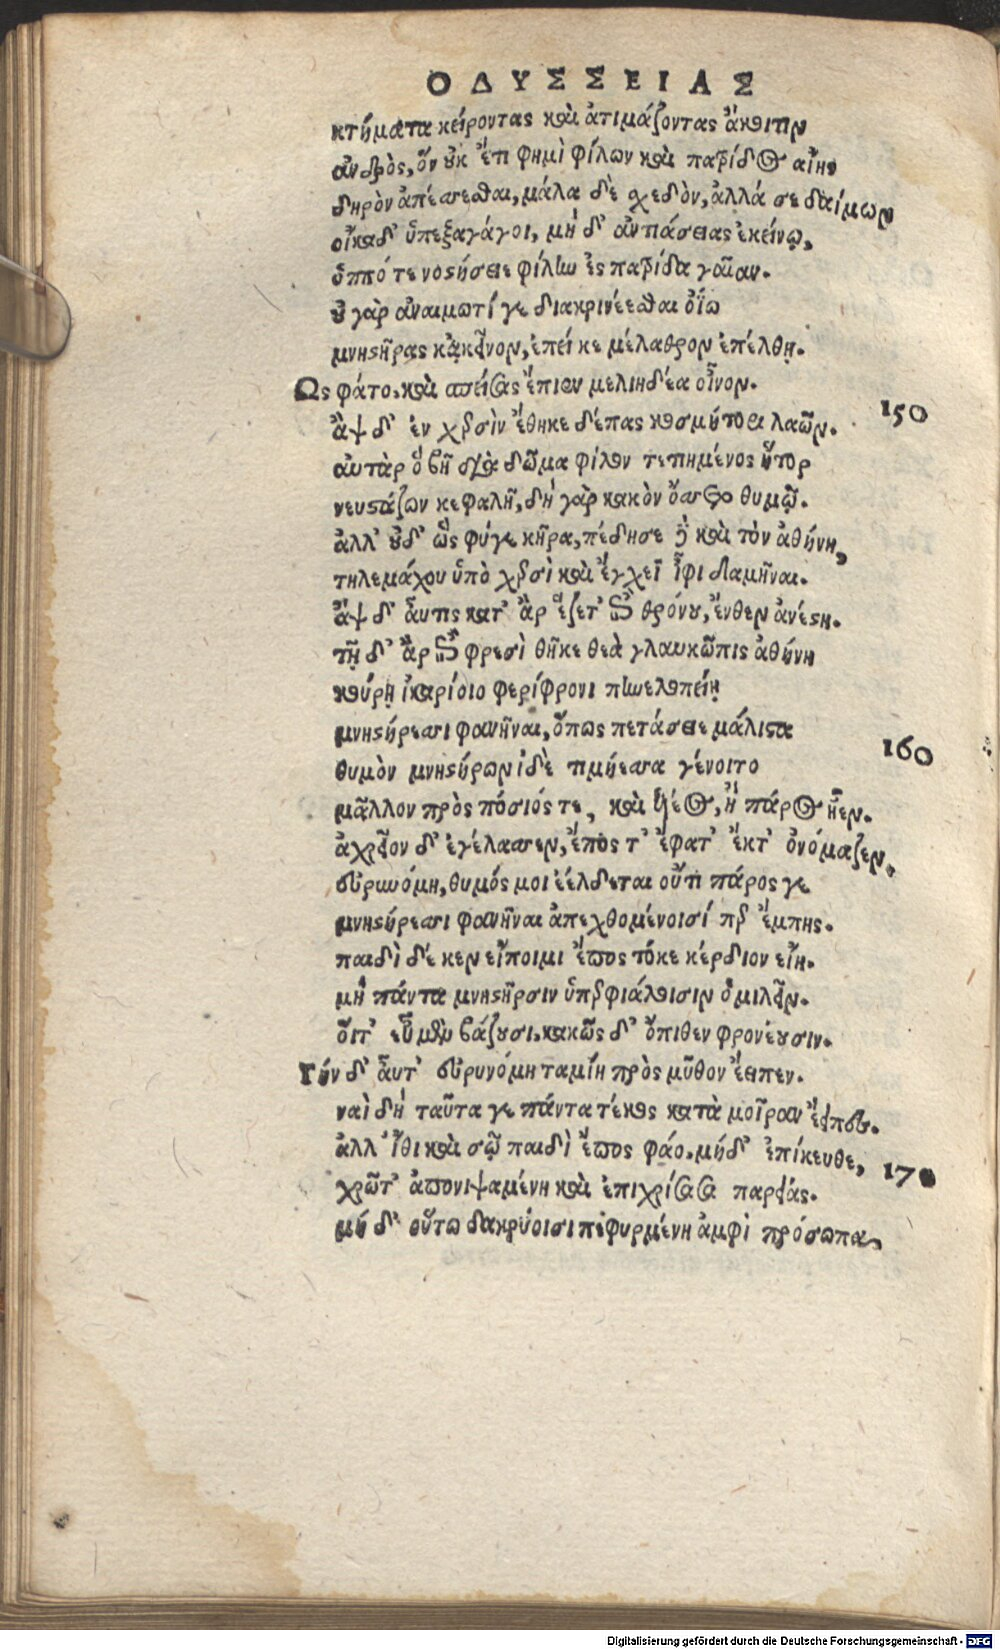 ΟΔΥΣΣΕΙΑΣ
κτήματα κείροντας καὶ ἀτιμάζοντας ἄκοιτιν
ἀνδρὸς, ὃν οὐκ ἔτι φημὶ φίλων καὶ πατρίδος αἴης
δηρὸν ἀπέσσεσθαι, μάλα δὲ σχεδὸν, ἀλλά σε δαίμων
οἴκαδ' ὑπεξαγάγοι, μὴ δ' ἀντιάσειας ἐκείνῳ,
ὁππότε νοστήσειε φίλην ἐς πατρίδα γαῖαν.
οὐ γὰρ ἀναιμωτί γε διακρινέεσθαι ὀΐω
μνηστῆρας κᾀκεῖνον, ἐπεί κε μέλαθρον ἐπέλθῃ.
Ὣς φάτο. καὶ σπείσας ἔπιεν μελιηδέα οἶνον.
ἂψ δ' ἐν χερσὶν ἔθηκε δέπας κοσμήτορι λαῶν. 150
αὐτὰρ ὁ βῆ διὰ δῶμα φίλον τετιημένος ἦτορ
νευστάζων κεφαλῇ, δὴ γὰρ κακὸν ὄσσετο θυμῷ.
ἀλλ' οὐδ' ὣς φύγε κῆρα, πέδησε δὲ καὶ τὸν ἀθήνη,
τηλεμάχου ὑπὸ χερσὶ καὶ ἔγχεϊ ἶφι δαμῆναι.
ἂψ δ' αὖτις κατ' ἂρ ἕζετ' ἐπὶ θρόνου, ἔνθεν ἀνέστη.
τῇ δ' ἂρ ἐπὶ φρεσὶ θῆκε θεὰ γλαυκῶπις ἀθήνη
κούρῃ ἰκαρίοιο περίφρονι πηνελοπείῃ
μνηστήρεσσι φανῆναι, ὅπως πετάσειε μάλιστα
θυμὸν μνηστήρων ἰδὲ τιμήεσσα γένοιτο 160
μᾶλλον πρὸς πόσιός τε, καὶ υἱέος, ἢ πάρος ἦεν.
ἀχρεῖον δ' ἐγέλασσεν, ἔπος τ' ἔφατ' ἔκτ' ὀνόμαζεν.
εὐρυνόμη, θυμός μοι ἐέλδεται οὔτι πάρος γε
μνηστήρεσσι φανῆναι ἀπεχθομένοισί περ ἔμπης.
παιδὶ δέ κεν εἴποιμι ἔπος τόκε κέρδιον εἴη.
μὴ πάντα μνηστῆρσιν ὑπερφιάλοισιν ὁμιλεῖν.
οἵτ' εὖ μὲν βάζουσι. κακῶς δ' ὄπιθεν φρονέουσιν.
Τήν δ' αὖτ' εὐρυνόμη ταμίη πρὸς μῦθον ἔειπεν.
ναὶ δὴ ταῦτα γε πάντα τέκος κατὰ μοῖραν ἔειπες.
ἀλλ' ἴθι καὶ σῷ παιδὶ ἔπος φάο. μήδ' ἐπίκευθε, 170
χρῶτ' ἀπονιψαμένη καὶ ἐπιχρίσασα παρειάς.
μή δ' οὕτω δακρύοισι πεφυρμένη ἀμφὶ πρόσωπα,
Digitalisierung gefördert durch die Deutsche Forschungsgemeinschaft - DFG